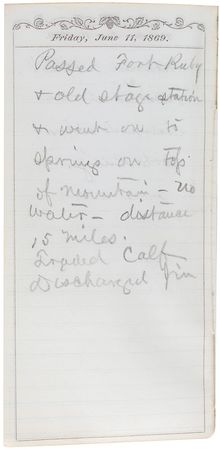 Friday, June 11, 1869.
Passed Fort Ruby
& old stage station
& went on to
springs on top
of mountain - no
water - distance
15 miles.
Traded Calf
Discharged Jim